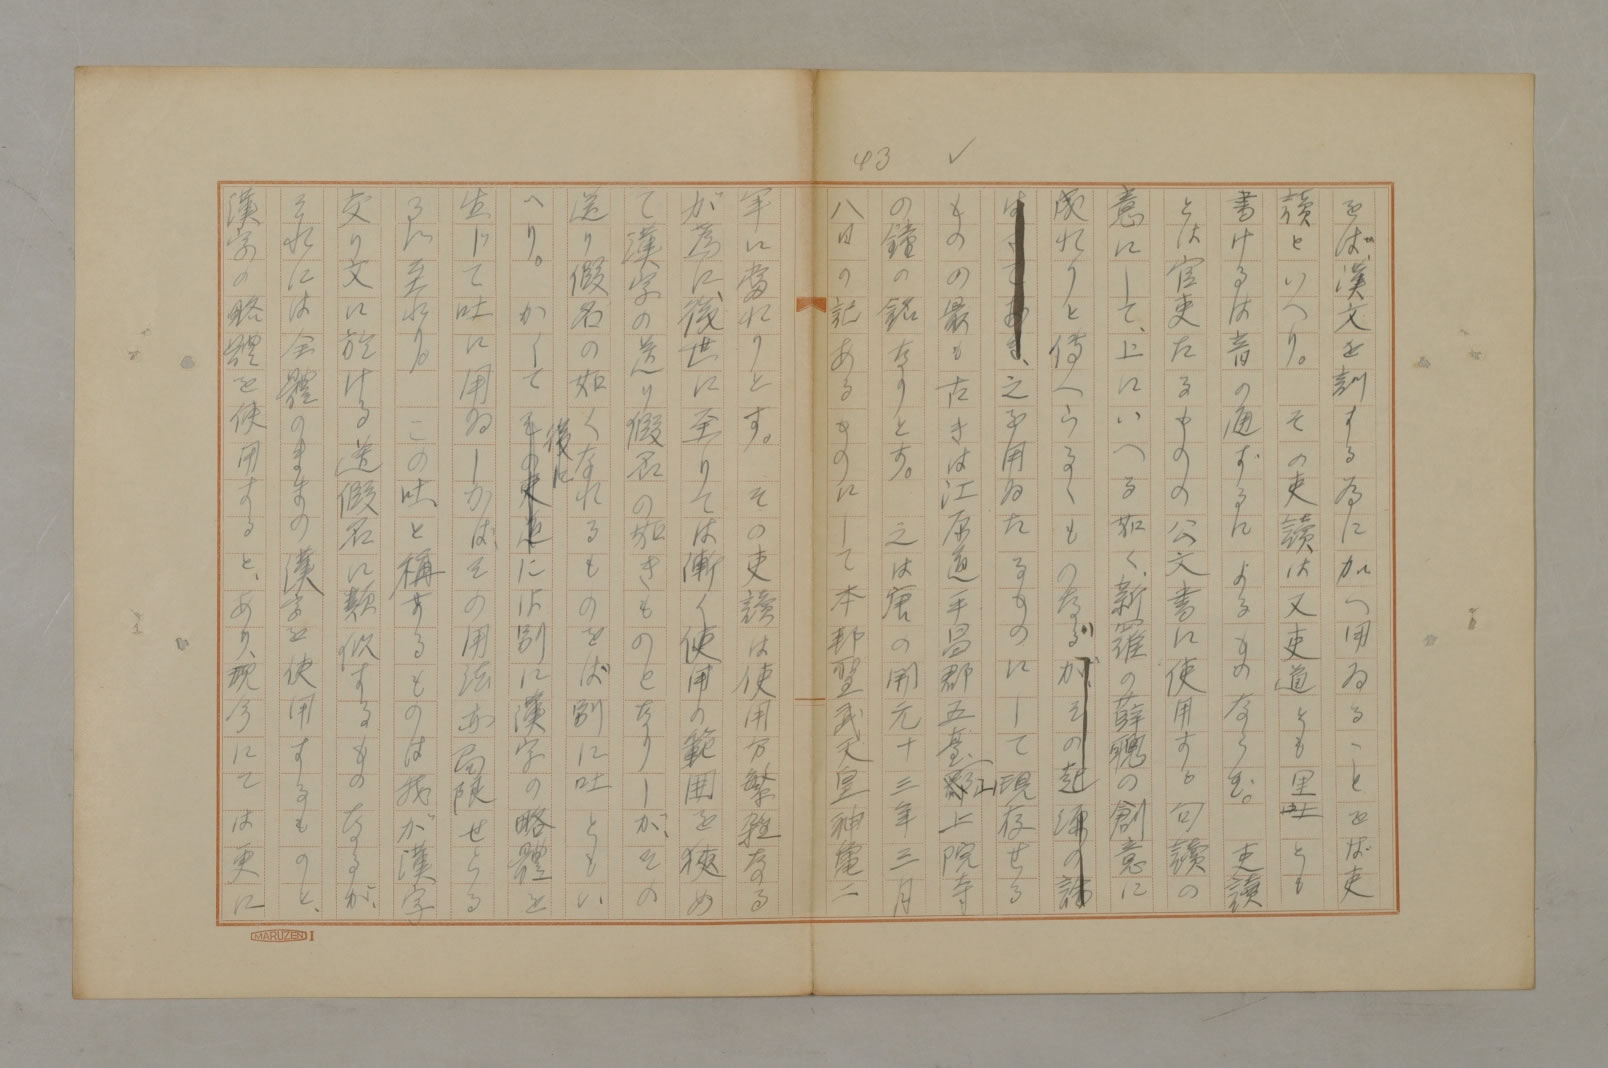 43 ✓
をば、漢文を訓する為に加へ用ゐることをば吏
讀といへり。その吏讀は又吏道とも里吐とも
書けるは音の通ずるによるものならむ。吏讀
とは官吏たるものの公文書に使用する句讀の
意にして、上にいへる如く、新羅の薛聰の創意に
成れりと傳へらるゝものなるがその起源の論
之を用ゐたるものにして現存せる
ものの最も古きは江原道平昌郡五臺山上院寺
の鐘の銘なりとす。之は唐の開元十三年三月
八日の記あるものにして本邦聖武天皇神龜二
年に當れりとす。その吏讀は使用方繁雜なる
が為に、後世に至りては漸く使用の範囲を狹め
て漢字の送り假名の如きものとなりしが、その
送り假名の如くなれるものをば別に吐ともい
へり。かくて後には別に漢字の略體を
生じて吐に用ゐしかば、その用法局限せらる
るに至れり。この吐と稱するものは我が漢字
交り文に於ける送假名に類似するものなるが、
それには全體のままの漢字を使用するものと、
漢字の略體を使用すると、あり、現今にては更に
MARUZEN I